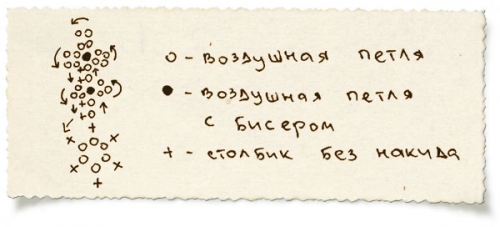 o - воздушная петля
● - воздушная петля
с бисером
+ - столбик без накида